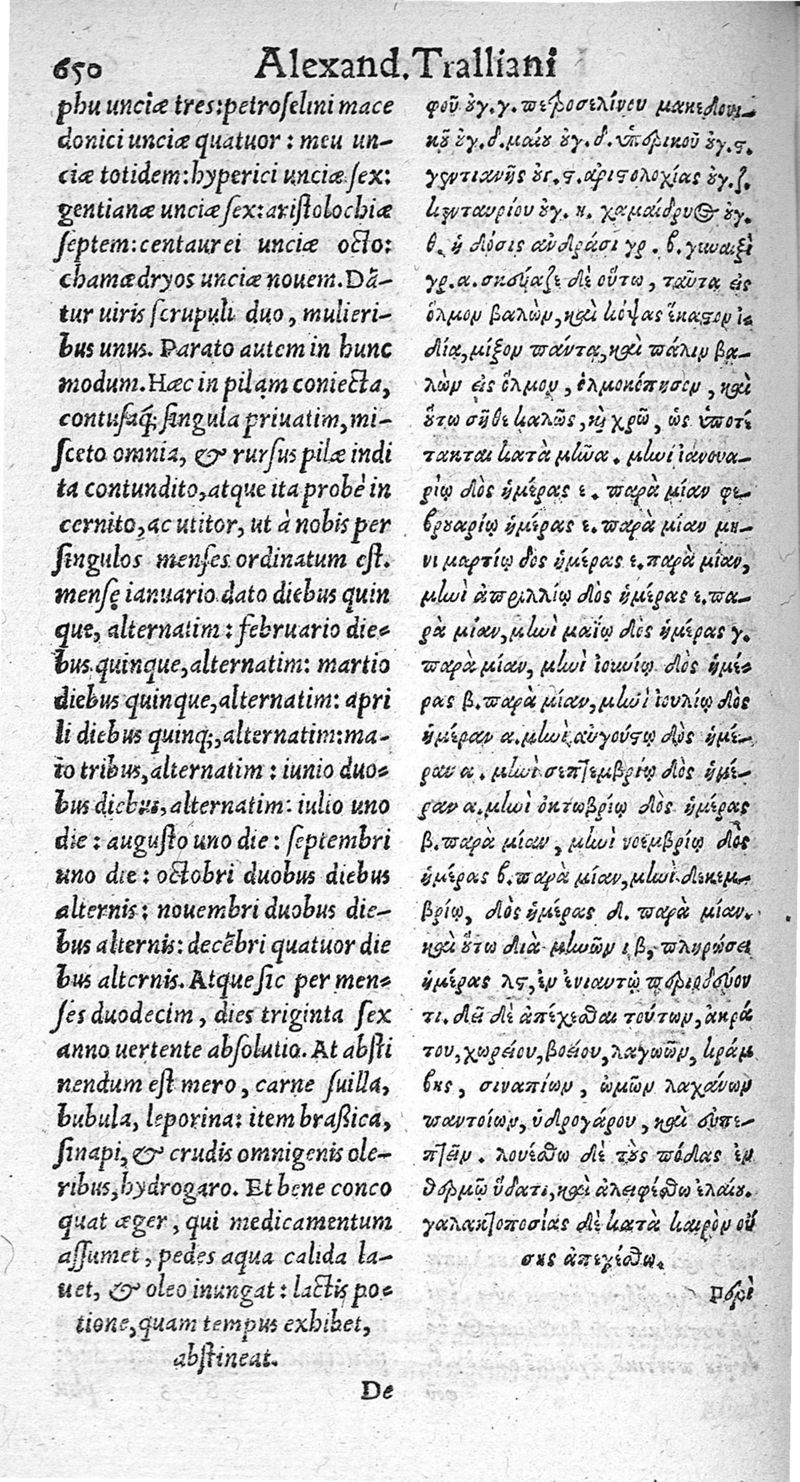 650 Alexand. Tralliani
phu unciæ tres: petroselini mace
donici unciæ quatuor: meu un-
ciæ totidem: hyperici unciæ sex:
gentianæ unciæ sex: aristolochiæ
septem: centaurei unciæ octo:
chamædryos unciæ nouem. Dā-
tur uiris scrupuli duo, mulieri-
bus unus. Parato autem in hunc
modum. Hæc in pilam coniecta,
contusaq́; singula priuatim, mi-
sceto omnia, & rursus pilæ indi
ta contundito, atque ita probè in
cernito, ac utitor, ut à nobis per
singulos menses ordinatum est.
mense ianuario dato diebus quin
que, alternatim: februario die-
bus quinque, alternatim: martio
diebus quinque, alternatim: apri
li diebus quinq;, alternatim: ma-
io tribus, alternatim: iunio duo-
bus diebus, alternatim: iulio uno
die: augusto uno die: septembri
uno die: octobri duobus diebus
alternis: nouembri duobus die-
bus alternis: decēbri quatuor die
bus alternis. Atque sic per men-
ses duodecim, dies triginta sex
anno uertente absolutio. At absti
nendum est mero, carne suilla,
bubula, leporina: item braßica,
sinapi, & crudis omnigenis ole-
ribus, hydrogaro. Et bene conco
quat æger, qui medicamentum
assumet, pedes aqua calida la-
uet, & oleo inungat: lactis po-
tione, quam tempus exhibet,
abstineat.
De
φοῦ ὀγ. γ. πεϸοσελίνου μακεδονι-
κοῦ ὀγ. δ. μαίου ὀγ. δ. ὑπερικοῦ ὀγ. ϛ.
γεντιανῆς ὀγ. ϛ. ἀριστολοχίας ὀγ. ζ.
κενταυρίου ὀγ. η. χαμαίδρυος ὀγ.
θ. ἡ δόσις ἀνδράσι γρ. β. γυναιξὶ
γρ. α. σκεύαζε δὲ οὕτω, ταῦτα εἰς
ὅλμον βαλὼν, καὶ κόψας ἕκαστον ἰ-
δίᾳ, μίξον πάντα, καὶ πάλιν βα-
λὼν εἰς ὅλμον, ὁλμοκόπησον, καὶ
οὕτω σῆθε καλῶς, καὶ χρῶ, ὡς ὑποτέ
τακται κατὰ μῆνα. μηνὶ ἰανουα-
ρίῳ δὸς ἡμέρας ε. παρὰ μίαν φε-
βρουαρίῳ ἡμέρας ε. παρὰ μίαν μη-
νὶ μαρτίῳ δὸς ἡμέρας ε. παρὰ μίαν,
μηνὶ ἀπριλλίῳ δὸς ἡμέρας ε. πα-
ρὰ μίαν, μηνὶ μαΐῳ δὸς ἡμέρας γ.
παρὰ μίαν, μηνὶ ἰουνίῳ δὸς ἡμέ-
ρας β. παρὰ μίαν, μηνὶ ἰουλίῳ δὸς
ἡμέραν α. μηνὶ αὐγούστῳ δὸς ἡμέ-
ραν α. μηνὶ σεπτεμβρίῳ δὸς ἡμέ-
ραν α. μηνὶ ὀκτωβρίῳ δὸς ἡμέρας
β. παρὰ μίαν, μηνὶ νοεμβρίῳ δὸς
ἡμέρας β. παρὰ μίαν, μηνὶ δεκεμ-
βρίῳ, δὸς ἡμέρας δ. παρὰ μίαν.
καὶ οὕτω διὰ μηνῶν ιβ, πληρώσει
ἡμέρας λϛ, ἐν ἐνιαυτῷ περιοδεύον
τι. δεῖ δὲ ἀπέχεσθαι τούτων, ἀκρά
του, χωρείου, βοείου, λαγωῶν, κράμ
βης, σιναπίων, ὠμῶν λαχάνων
παντοίων, ὑδρογάρου, καὶ εὐπε-
πτεῖν. λουέσθω δὲ τοὺς πόδας ἐν
θερμῷ ὕδατι, καὶ ἀλειφέσθω ἐλαίου.
γαλακτοποσίας δὲ κατὰ καιρὸν οὔ
σης ἀπεχέσθω.
Περὶ